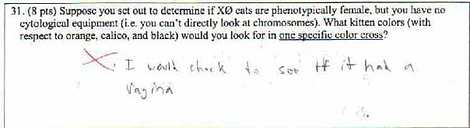 31. (8 pts) Suppose you set out to determine if XØ cats are phenotypically female, but you have no
cytological equipment (i.e. you can't directly look at chromosomes). What kitten colors (with
respect to orange, calico, and black) would you look for in one specific color cross?
I would check to see if it had a
vagina